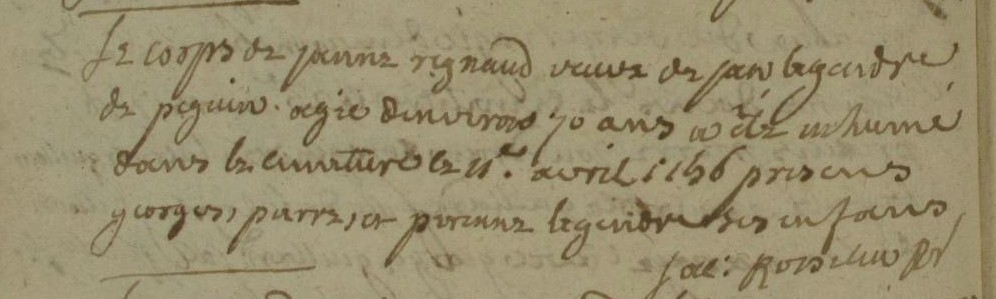 le corps de janne rignaud veuve de jan legendre
de peguin. agée denviron 70 ans a été inhumé
dans le cimiture le 11e. avril 1756 presens
georges, pierre, et perinne legendre ses enfans
jac: pbr